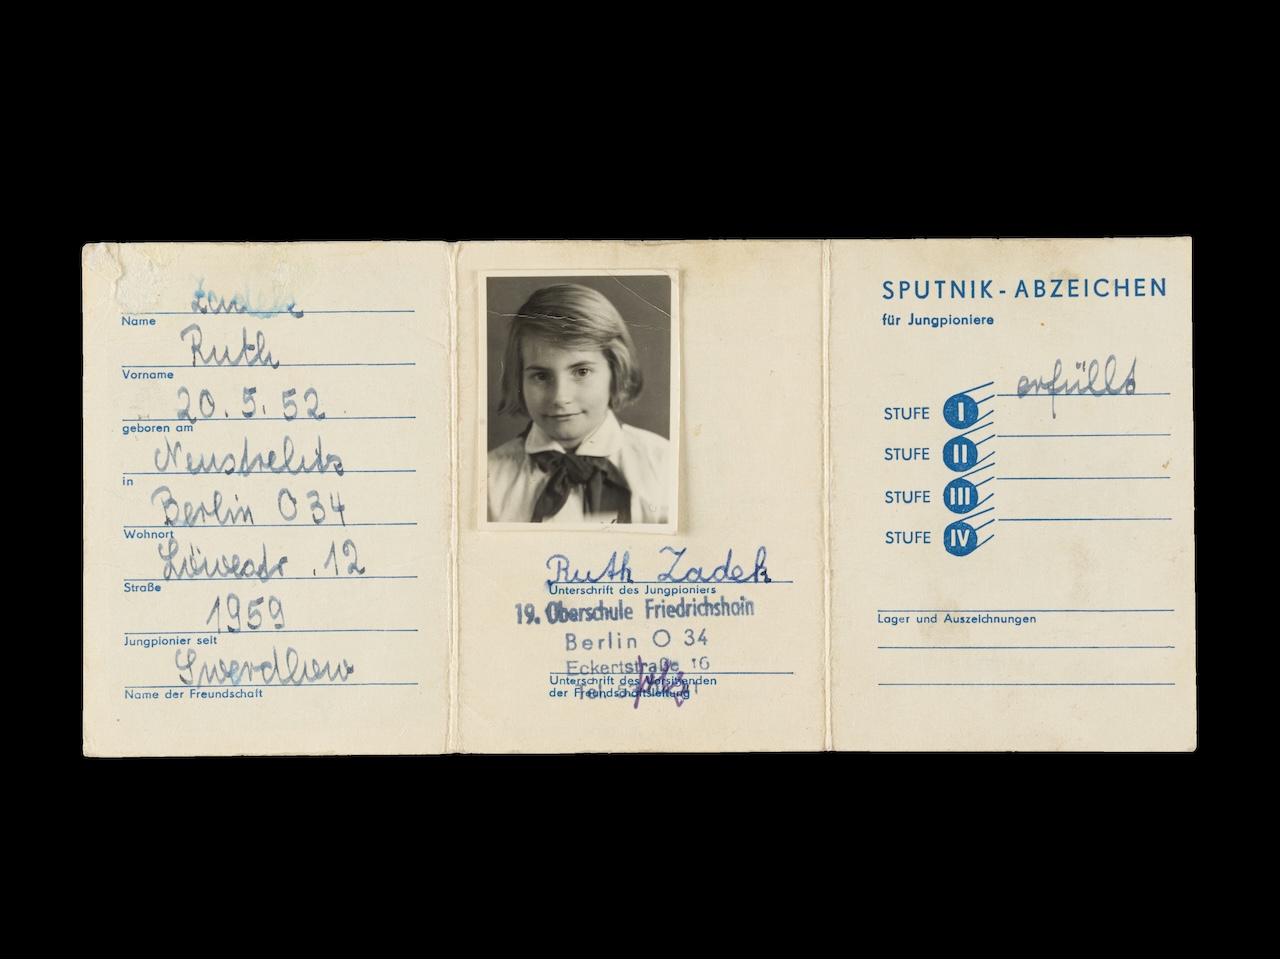 Zadek
Name
Ruth
Vorname
20.5.52
geboren am
Neustrelitz
in
Berlin O 34
Wohnort
Löwestr. 12
Straße
1959
Jungpionier seit
Swerdlow
Name der Freundschaft
Ruth Zadek
Unterschrift des Jungpioniers
19. Oberschule Friedrichshain
Berlin O 34
Eckertstraße 16
Unterschrift des Vorsitzenden
der Freundschaftsleitung
SPUTNIK-ABZEICHEN
für Jungpioniere
STUFE I erfüllt
STUFE II
STUFE III
STUFE IV
Lager und Auszeichnungen